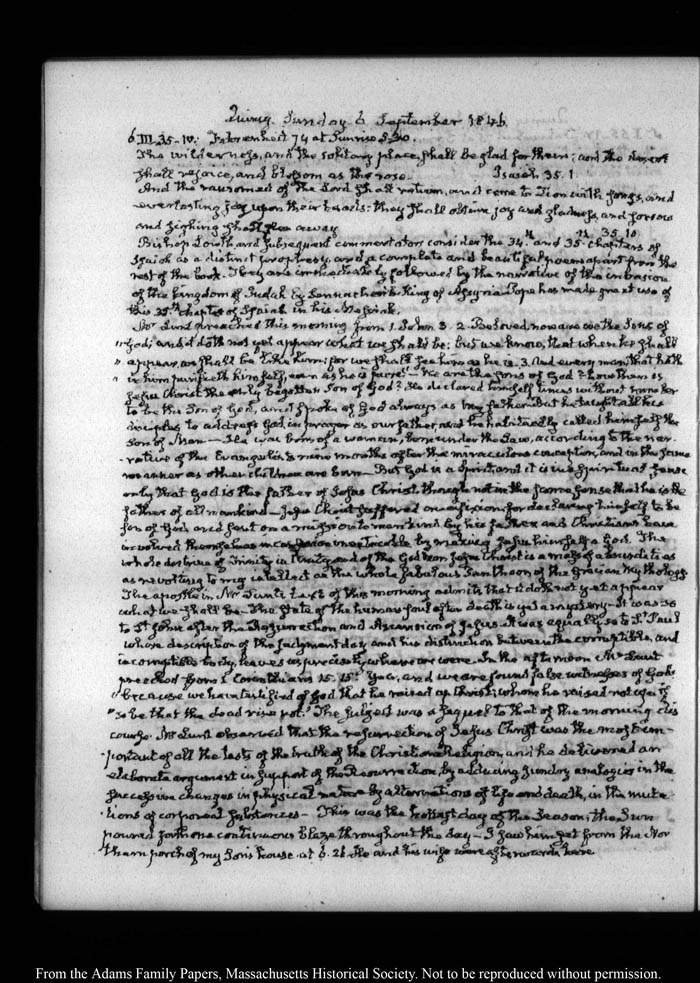 Quincy. Sunday 6 September 1846.
6. III. 35-IV: Fahrenheit 74 at Sunrise 5.30.
The wilderness, and the solitary place, shall be glad for them; and the desert
shall rejoice, and blossom as the rose. Isaiah 35. 1.
And the ransomed of the Lord shall return, and come to Zion with songs, and
everlasting joy upon their heads: they shall obtain joy and gladness, and sorrow
and sighing shall flee away 35. 10
Bishop Lowth, and subsequent commentators consider the 34th and 35th chapters of
Isaiah as a distinct prophesy, and a complete and beautiful poem apart from the
rest of the book. They are immediately followed by the narrative of the invasion
of the kingdom of Judah by Sennacherib King of Assyria. Pope has made great use of
this 35th chapter of Isaiah in his Messiah.
Mr Lunt preached this morning from 1. John 3. 2. Beloved, now are we the Sons of
"God; and it doth not yet appear what we shall be: but we know, that when he shall
" appear, we shall be like him; for we shall see him as he is. 3. And every man that hath
" in him purifieth himself, even as he is pure." We are the sons of God? how then is
Jesus Christ the only begotten Son of God? He declared himself times without number
to be the Son of God, and spoke of God always as my father. But he taught all his
disciples to address God in prayer as our father, and he habitually called himself the
Son of Man — He was born of a woman, born under the Law, according to the nar-
-rative of the Evangelists nine months after the miraculous conception, and in the same
manner as other children are born — But God is a spirit, and it is in a spiritual sense
only that God is the father of Jesus Christ though not in the same sense that he is the
father of all mankind — Jesus Christ suffered crucifixion for declaring himself to be
son of God and sent on a mission to mankind by his father and Christians have
involved themselves in confusion inextricable by making Jesus himself a God. The
whole doctrine of Trinity in Unity and of the God man Jesus Christ is a mass of absurdities
as revolting to my intellect as the whole fabulous Pantheon of the Grecian Mythology
The apostle in Mr Lunt's text of this morning admits that it doth not yet appear
what we shall be — The state of the human soul after death is yet a mystery — It was so
to St John after the Resurrection and Ascension of Jesus. It was equally so to St Paul
whose description of the Judgment day and his distinction between the corruptible, and
incorruptible body, leaves us precisely where we were. In the afternoon Mr Lunt
preached from 1. Corinthians 15. 15. "Yea, and we are found false witnesses of God:
"because we have testified of God that he raised up Christ; whom he raised not up if
"so be that the dead rise not." The subject was a sequel to that of the morning dis
course. Mr Lunt observed that the resurrection of Jesus Christ was the most im-
-portant of all the tests of the truth of the Christian Religion, and he delivered an
elaborate argument in support of the Resurrection, by adducing sundry analogies in the
successive changes in physical nature by alternations of life and death, in the muta
tions of corporeal substances — This was the hottest day of the Season; the Sun
poured forth one continuous blaze throughout the day — I saw him set from the Nor
thern porch of my Son's house at 6. 26 He and his wife were afterwards here
From the Adams Family Papers, Massachusetts Historical Society. Not to be reproduced without permission.